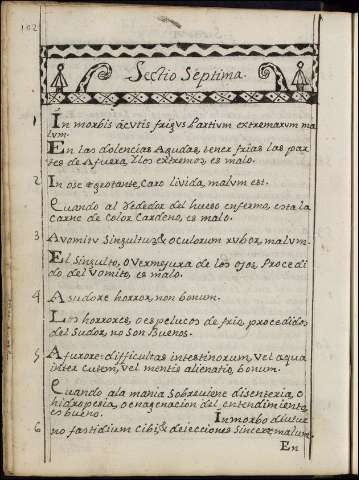 102
Sectio Septima.
1 In morbis acutis frigus Partium extremarum ma
lum.
En las dolencias Agudas, tener frias las par
tes de Afuera, Y los extremos, es malo.
2 In osse ægrotante, Caro livida, malum est.
Quando al rededor del hueso enfermo, esta la
carne de Color Cardeno, es malo.
3 A vomitu Singultus & oculorum rubor, malum.
El Singulto, O Vermejura de los ojos, Procedi
do, del Vomito, es malo.
4 A sudore horror, non bonum.
Los horrores, o espelucos de frio, procedidos
del Sudor, no Son Buenos.
5 A furore difficultas intestinorum, Vel aqua
inter cutem, vel mentis alienatio, bonum.
Quando a la mania Sobreviene disenteria, o
hidropesia, o enagenacion del entendimiento,
es bueno. In morbo diutur
6 no fastidium Cibi, & deiecciones Sinceræ, malum.
En